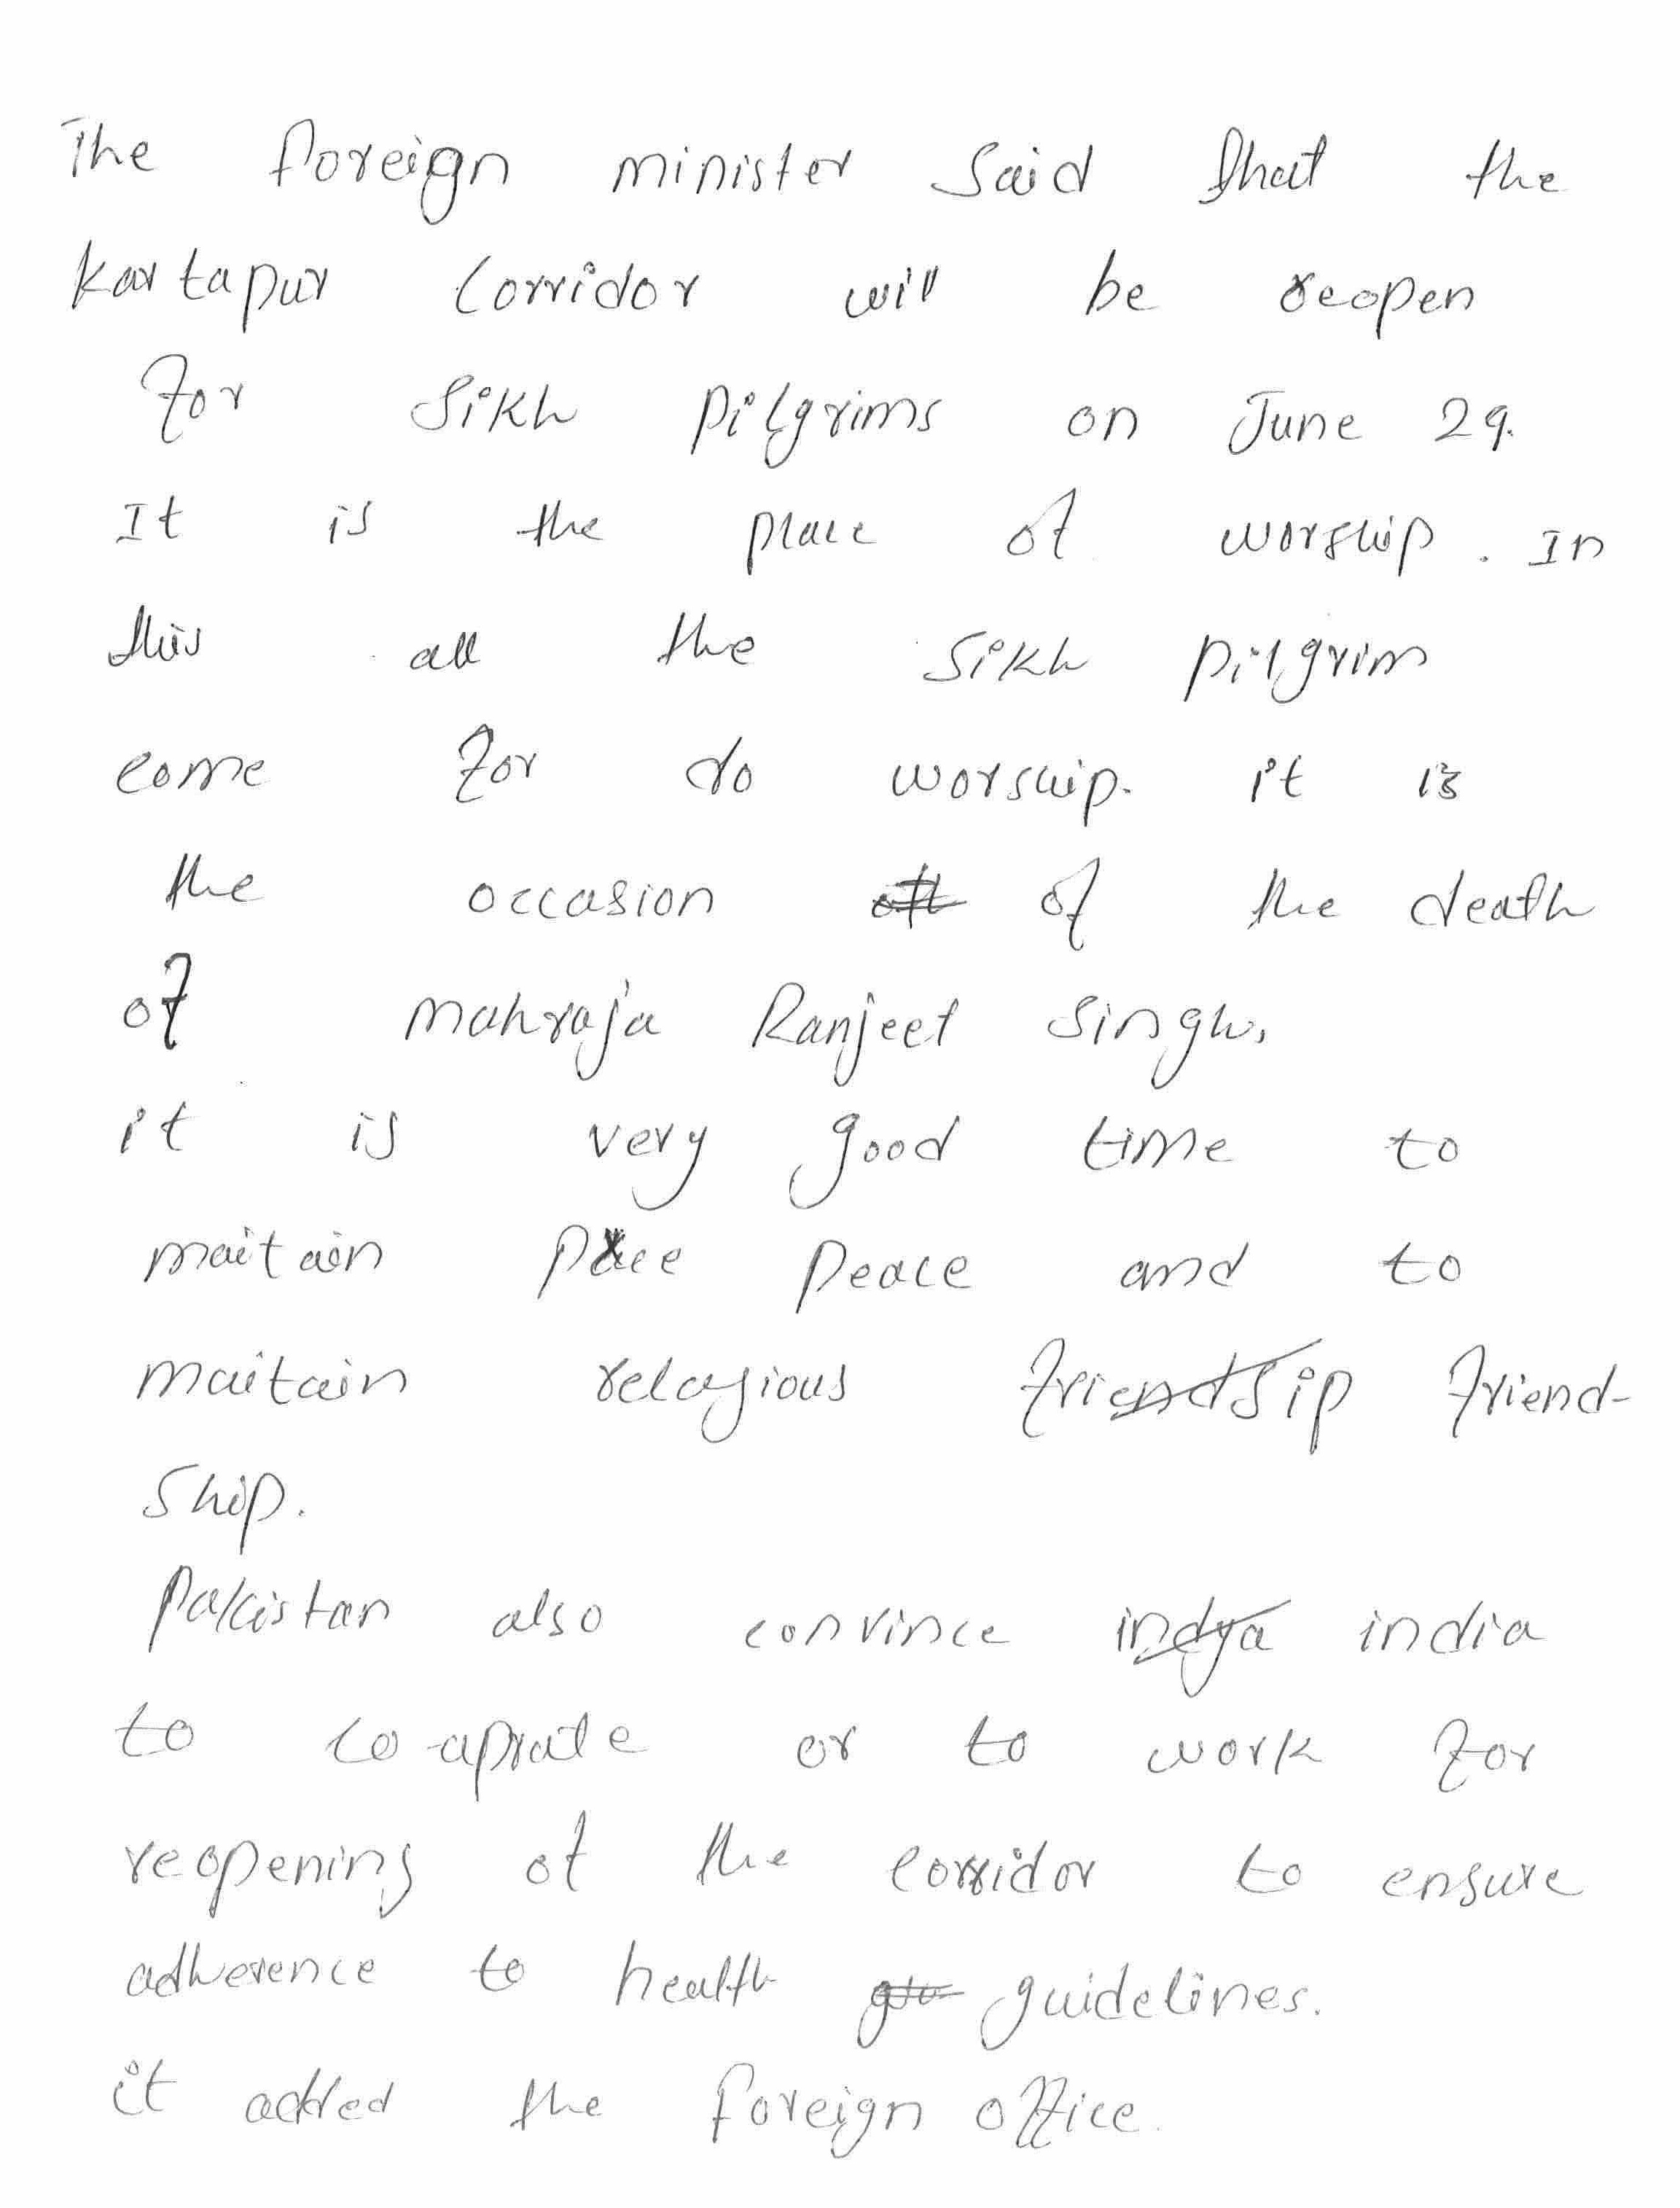 The foreign minister said that the
kartapur Corridor will be reopen
for Sikh pilgrims on June 29.
It is the place of worship. In
this all the Sikh pilgrim
come for do worship. it is
the occasion of the death
of mahraja Ranjeet Singh.
it is very good time to
maitain peace and to
maitain relagious friendsip friend-
ship.
Pakistan also convince indya india
to co-aprate or to work for
reopening of the corridor to ensure
adherence to health guidelines.
it added the foreign office.